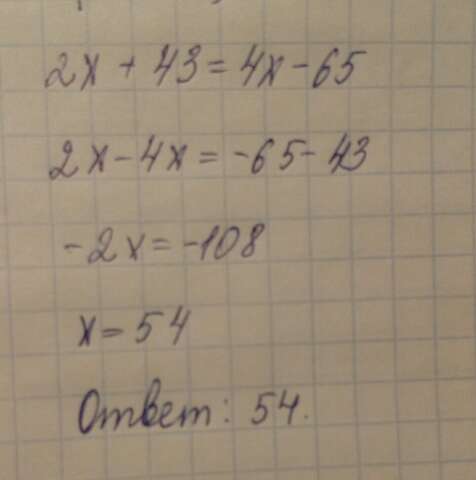 2x + 43 = 4x - 65
2x - 4x = -65 - 43
-2x = -108
x = 54
Ответ: 54.